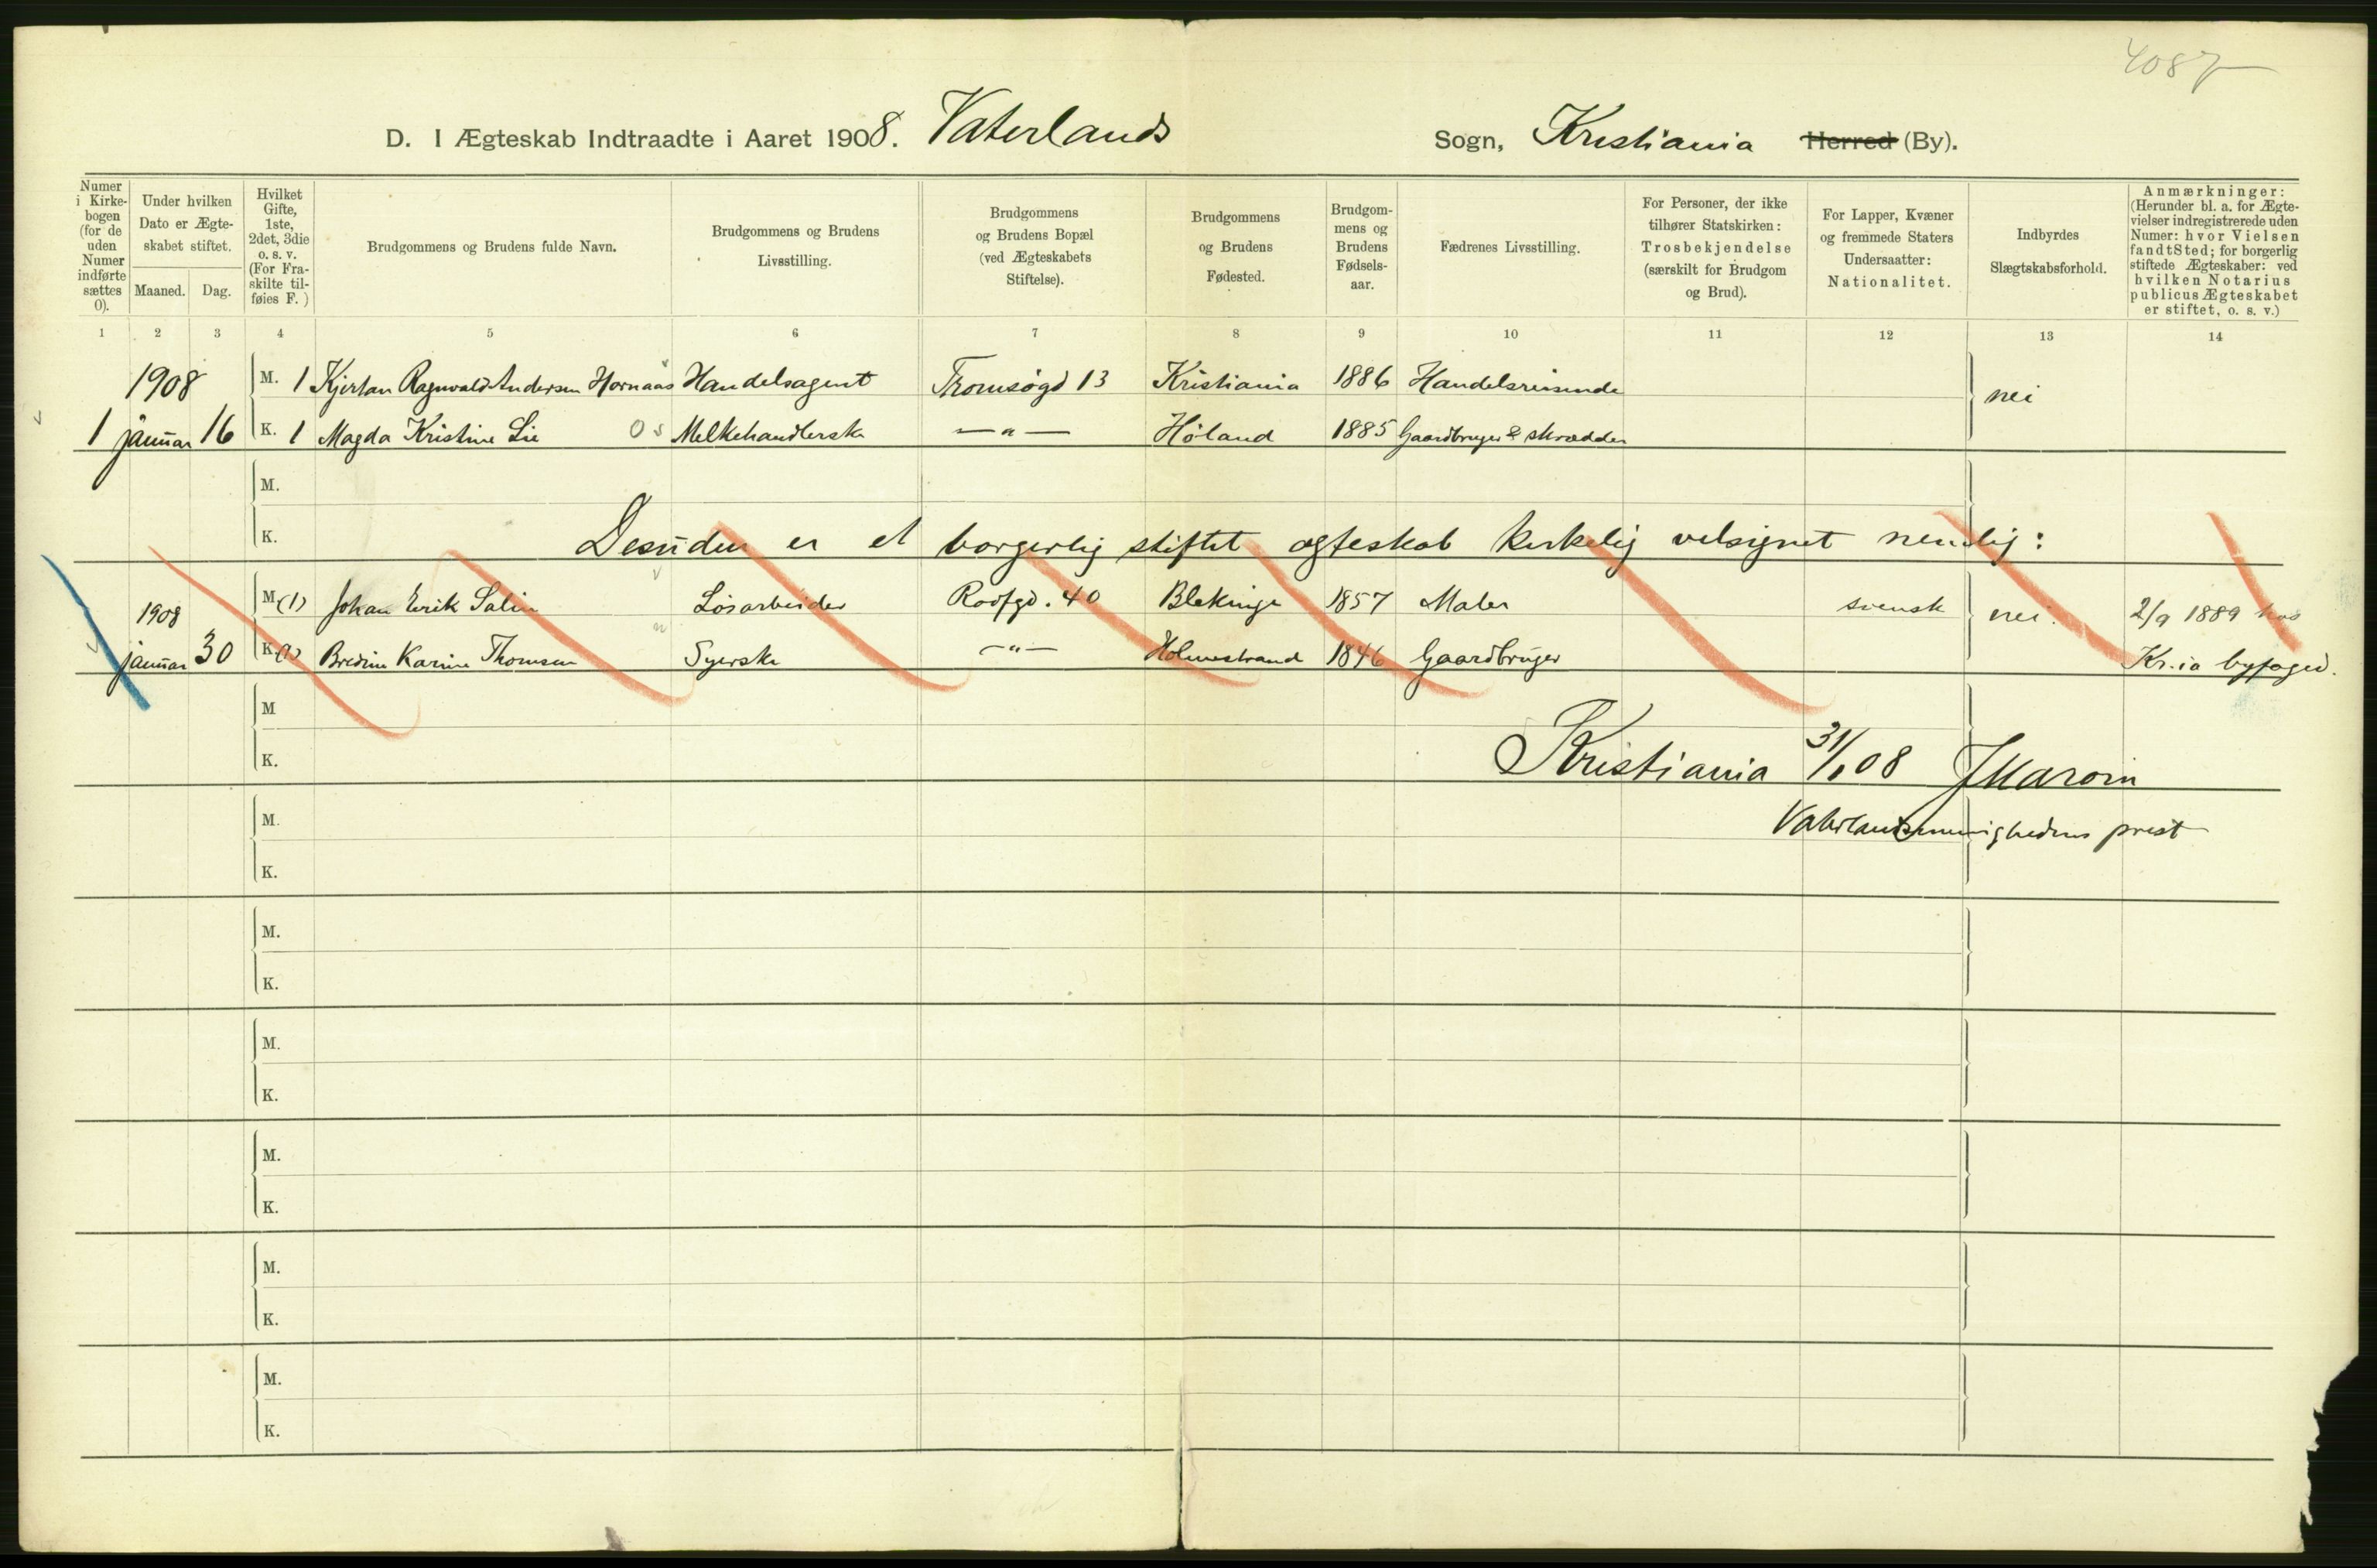 4087
D. I Ægteskab Indtraadte i Aaret 1908. Vaterlands Sogn, Kristiania Herred (By).
Numer i Kirkebogen (for de uden Numer indførte sættes 0).
Under hvilken Dato er Ægteskabet stiftet.
Maaned. Dag.
Hvilket Gifte, 1ste, 2det, 3die o. s. v. (For Fraskilte tilføies F.)
Brudgommens og Brudens fulde Navn.
Brudgommens og Brudens Livsstilling.
Brudgommens og Brudens Bopæl (ved Ægteskabets Stiftelse).
Brudgommens og Brudens Fødested.
Brudgommens og Brudens Fødselsaar.
Fædrenes Livsstilling.
For Personer, der ikke tilhører Statskirken: Trosbekjendelse (særskilt for Brudgom og Brud).
For Lapper, Kvæner og fremmede Staters Undersaatter: Nationalitet.
Indbyrdes Slægtskabsforhold.
Anmærkninger: (Herunder bl. a. for Ægtevielser indregistrerede uden Numer: hvor Vielsen fandt Sted; for borgerlig stiftede Ægteskaber: ved hvilken Notarius publicus Ægteskabet er stiftet, o. s. v.)
1 2 3 4 5 6 7 8 9 10 11 12 13 14
1908 M. 1 Kjertan Ragnvald Andersen Hornaas Handelsagent Tromsøgd 13 Kristiania 1886 Handelsreisende nei
1 januar 16 K. 1 Magda Kristine Lie Os Melkehandlerske —"— Høland 1885 Gaardbruger & skrædder
M.
K. Desuden er et borgerlig stiftet egteskab kirkelig velsignet nemlig:
1908 M. (1) Johan Erik Salin Løsarbeider Roofgd. 40 Blekinge 1857 Maler svensk nei. 2/9 1889 hos
januar 30 K. (1) Bredine Karine Thomsen Syerske —"— Holmestrand 1846 Gaardbruger Kr.ia byfoged.
M
K. Kristiania 31/1 08
M. Vaterlandsmenighedens prest
K.
M.
K.
M.
K.
M.
K.
M.
K.
M.
K.